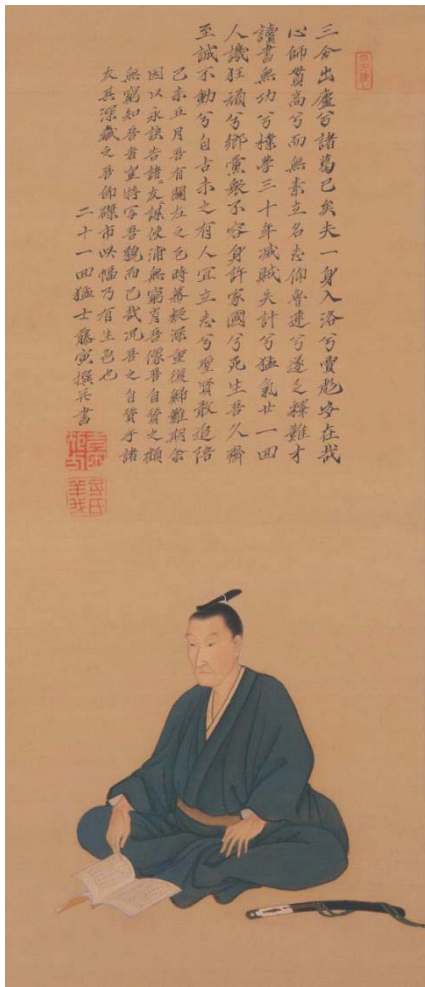 三分出廬兮諸葛已矣夫一身入洛兮賈彪安在哉
心師貫高兮而無素立名志仰魯連兮遂乏釋難才
讀書無功兮樸學三十年滅賊失計兮猛氣廿一回
人譏狂頑兮鄉黨衆不容身許家國兮死生吾久齊
至誠不動兮自古未之有人宜立志兮聖賢敢追陪
己未五月吾有關左之厄時幕疑深重復歸難期余
因以永訣告諸友謀使浦無窮肖吾像吾自賛之顧
無窮知吾者豈特写吾貌而已哉況吾之自賛乎諸
友其深藏之吾即磔市此幅乃有生色也
二十一回猛士藤寅撰并書